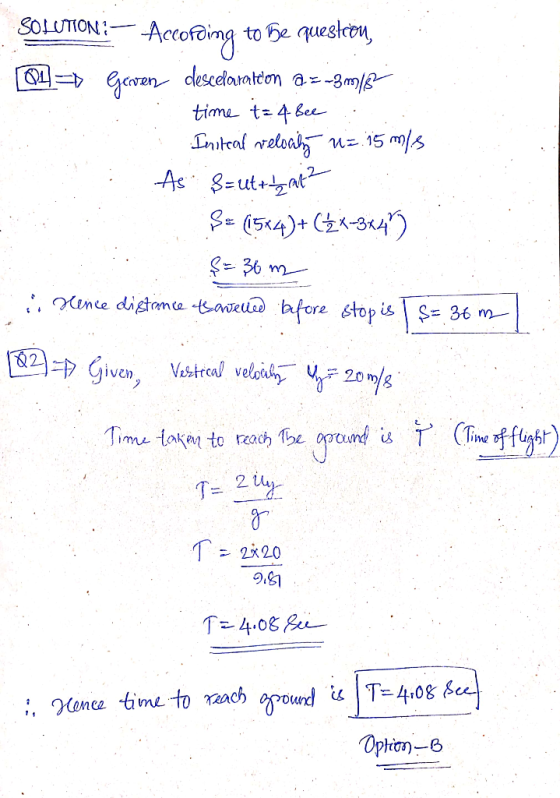 SOLUTION:- According to the question,
Q1 ⇒ Given descelaration a = -3m/s²
time t = 4 sec
Initial velocity u = 15 m/s
As S = ut + ½at²
S = (15×4) + (½×-3×4²)
S = 36 m
∴ Hence distance travelled before stop is S = 36 m
Q2 ⇒ Given, Vertical velocity uy = 20 m/s
Time taken to reach the ground is T (Time of flight)
T = 2uy
g
T = 2×20
9.81
T = 4.08 Sec
∴ Hence time to reach ground is T = 4.08 Sec
Option-B